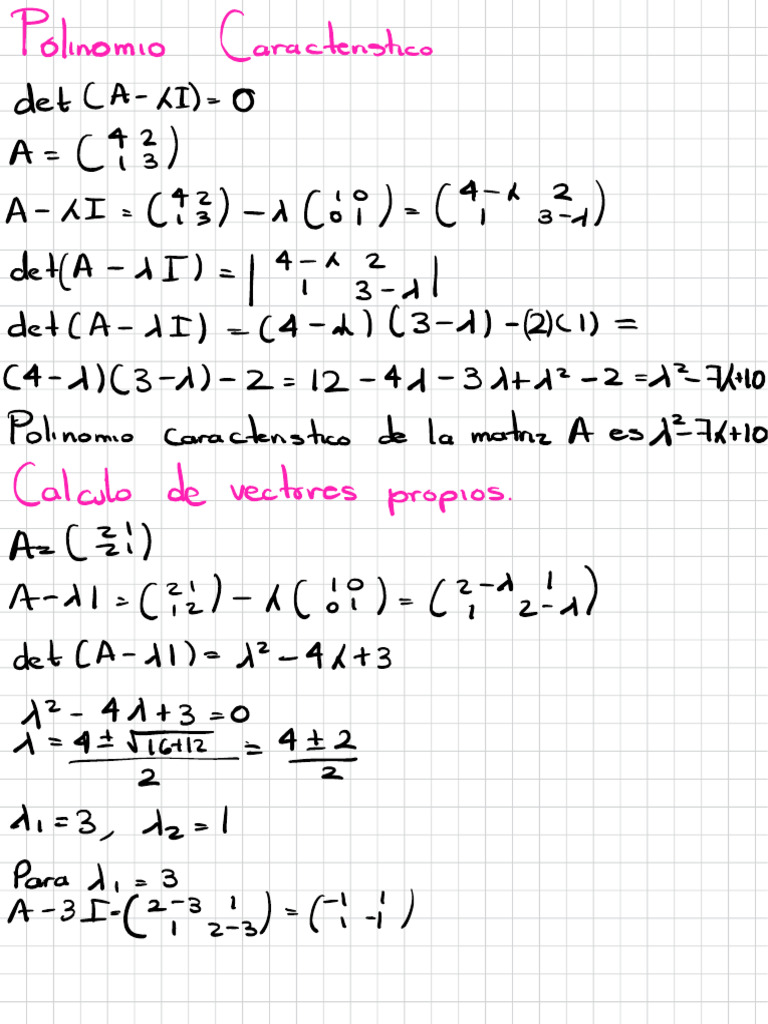 Polinomio Caracteristico
det (A-λI)=0
A = (4 2 1 3)
A-λI = (4 2 1 3) - λ (1 0 0 1) = (4-λ 2 1 3-λ)
det(A-λI) = |4-λ 2 1 3-λ|
det(A-λI) = (4-λ)(3-λ)-(2)(1) =
(4-λ)(3-λ)-2 = 12-4λ-3λ+λ²-2=λ²-7λ+10
Polinomio caracteristico de la matriz A es λ²-7λ+10
Calculo de vectores propios.
A= (2 1 2 1)
A-λI = (2 1 1 2) - λ (1 0 0 1) = (2-λ 1 1 2-λ)
det (A-λI) = λ²-4λ+3
λ²-4λ+3=0
λ = 4±√16+12 / 2 = 4±2 / 2
λ1=3, λ2=1
Para λ1=3
A-3I-(2-3 1 1 2-3) = (-1 1 1 -1)